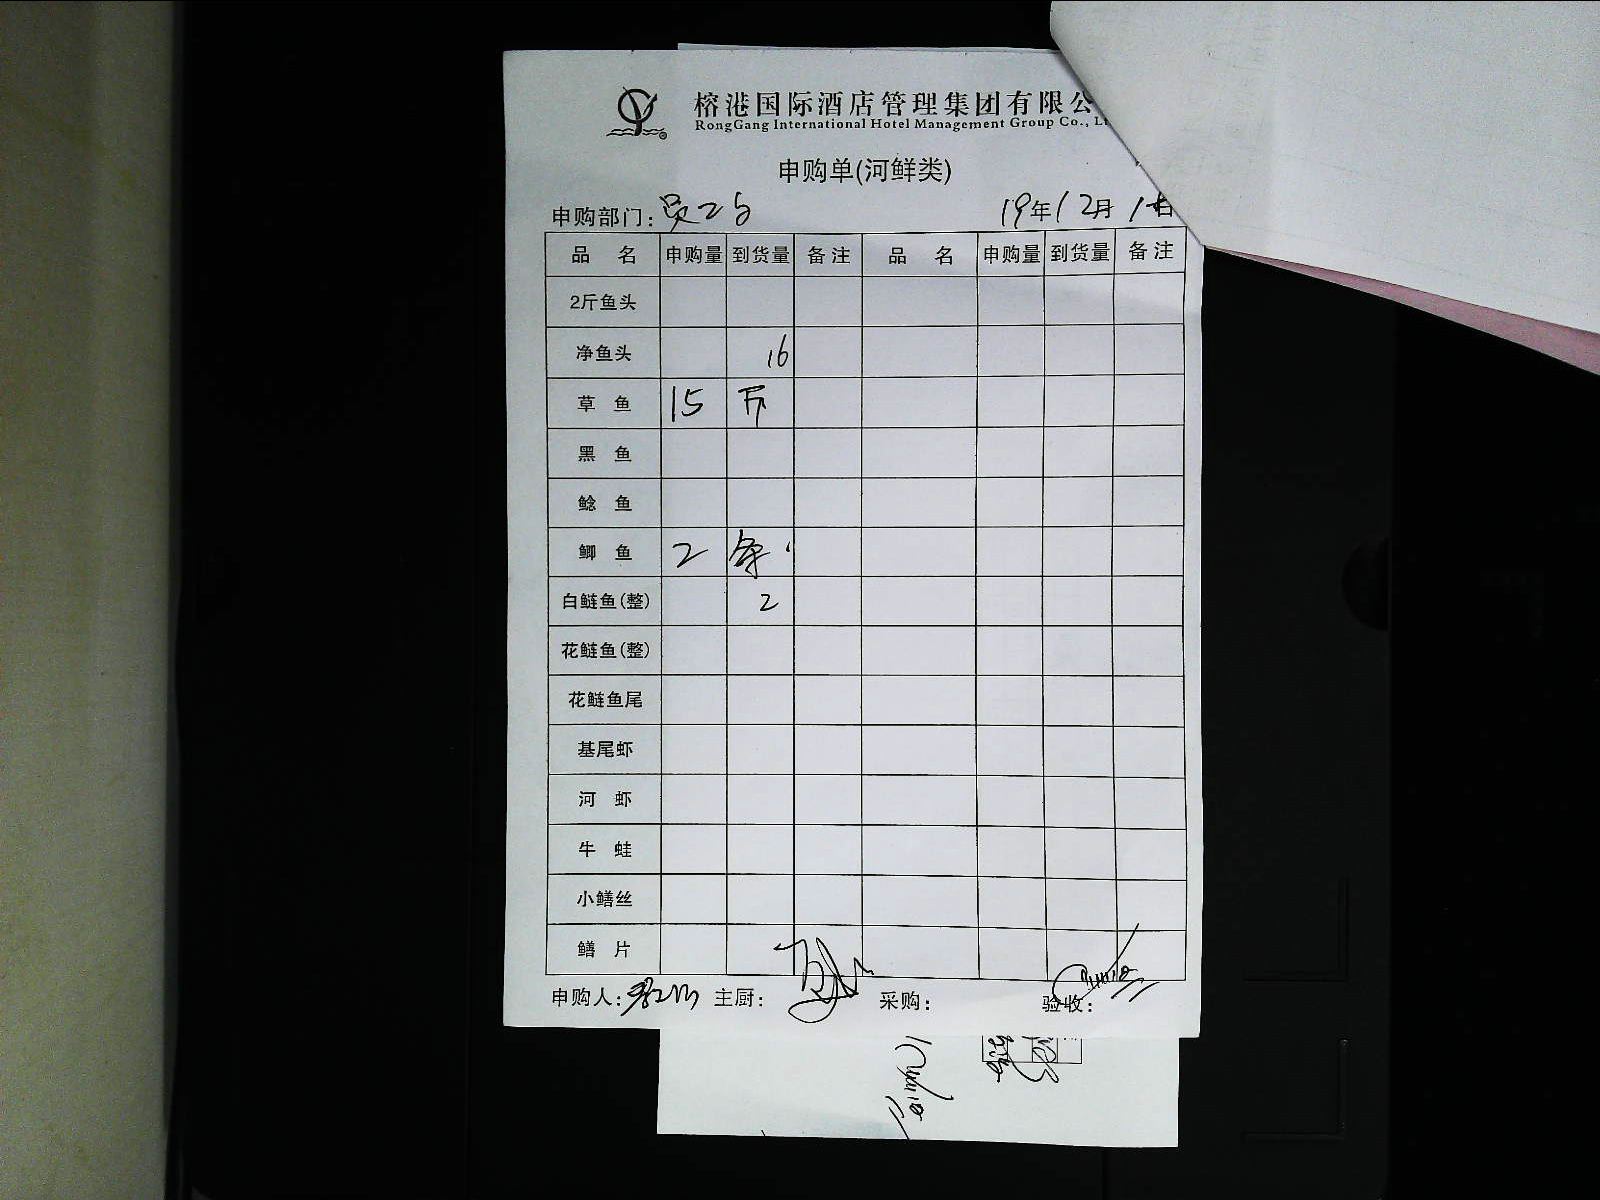 榕港国际酒店管理集团有限公
RongGang International Hotel Management Group Co., L
申购单(河鲜类)
申购部门: 19年12月1日
品 名 申购量 到货量 备注 品 名 申购量 到货量 备注
2斤鱼头
净鱼头 16
草 鱼 15 斤
黑 鱼
鲶 鱼
鲫 鱼 2 条
白鲢鱼(整) 2
花鲢鱼(整)
花鲢鱼尾
基尾虾
河 虾
牛 蛙
小鳝丝
鳝 片
申购人: 主厨: 采购: 验收: